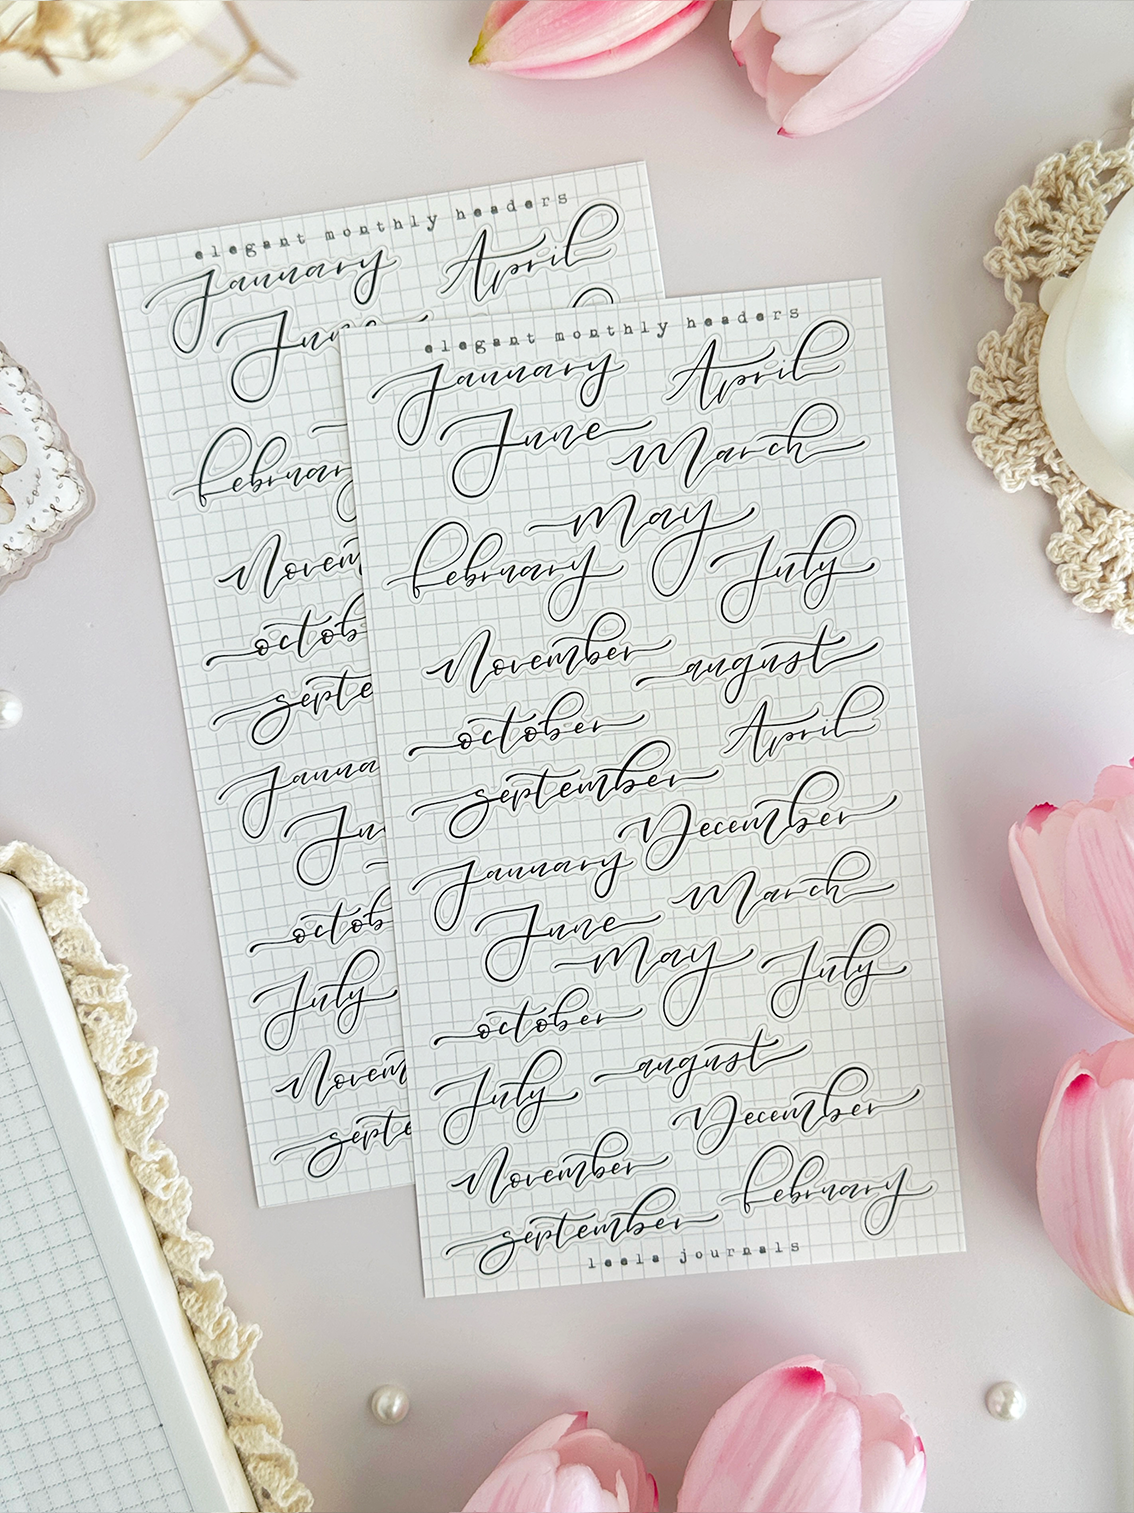 elegant monthly headers
January April
June
february
Novem
octob
septe
Janua
Ju
octob
July
Novem
septe
elegant monthly headers
January April
June March
May
february July
November august
october April
september
December
January March
June
May July
october
august
July
December
November
february
september
leela journals